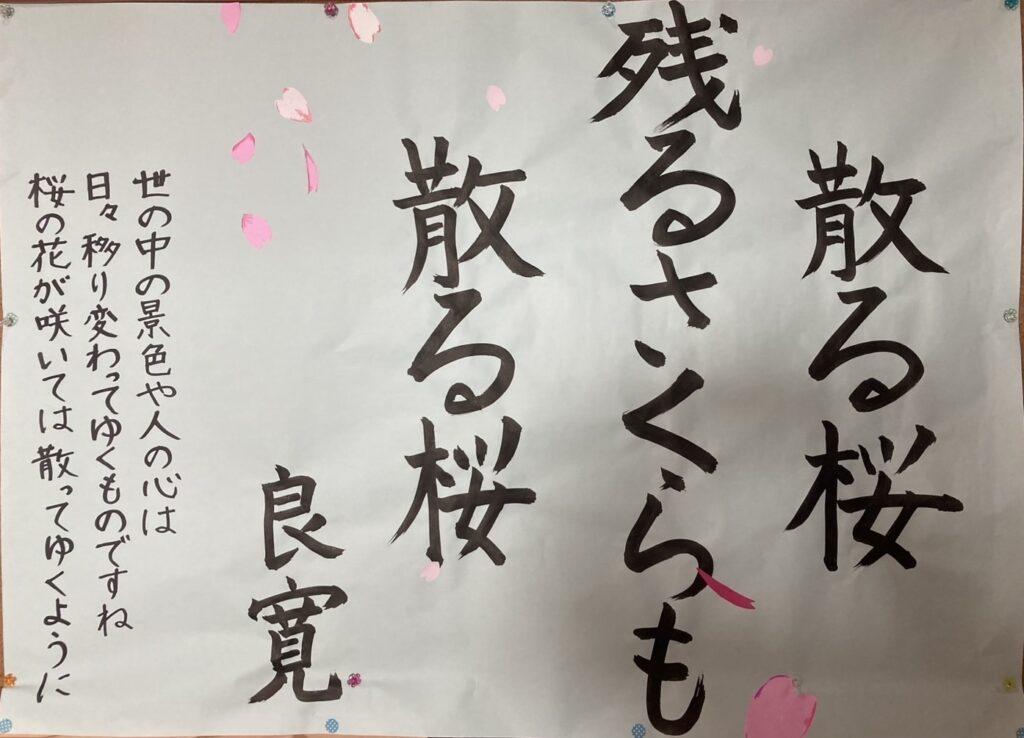 散る桜
残るさくらも
散る桜
良寛
世の中の景色や人の心は
日々移り変わってゆくものですね
桜の花が咲いては散ってゆくように